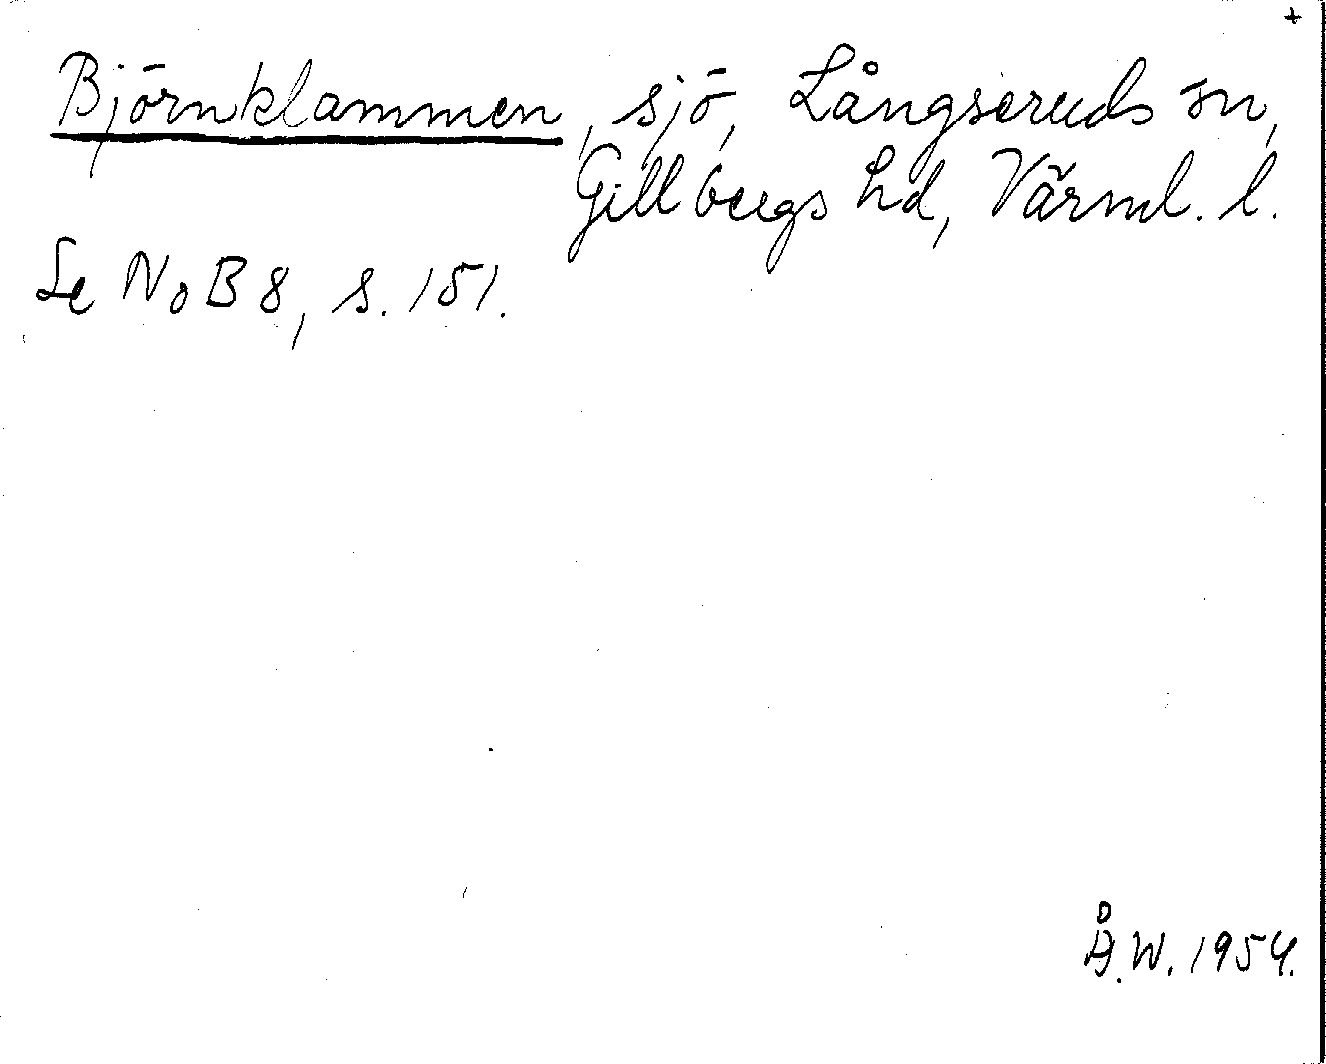 +
Björnklammen, sjö, Långseruds sn,
Gillbergs hd, Värml. l.
Se NoB 8, s. 151.
Å.W. 1954.